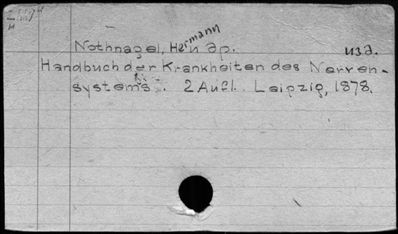 Nothnagel, Hermann и др. изд.
Handbuch der Krankheiten des Nerven-
systems. 2 Aufl. Leipzig, 1878.